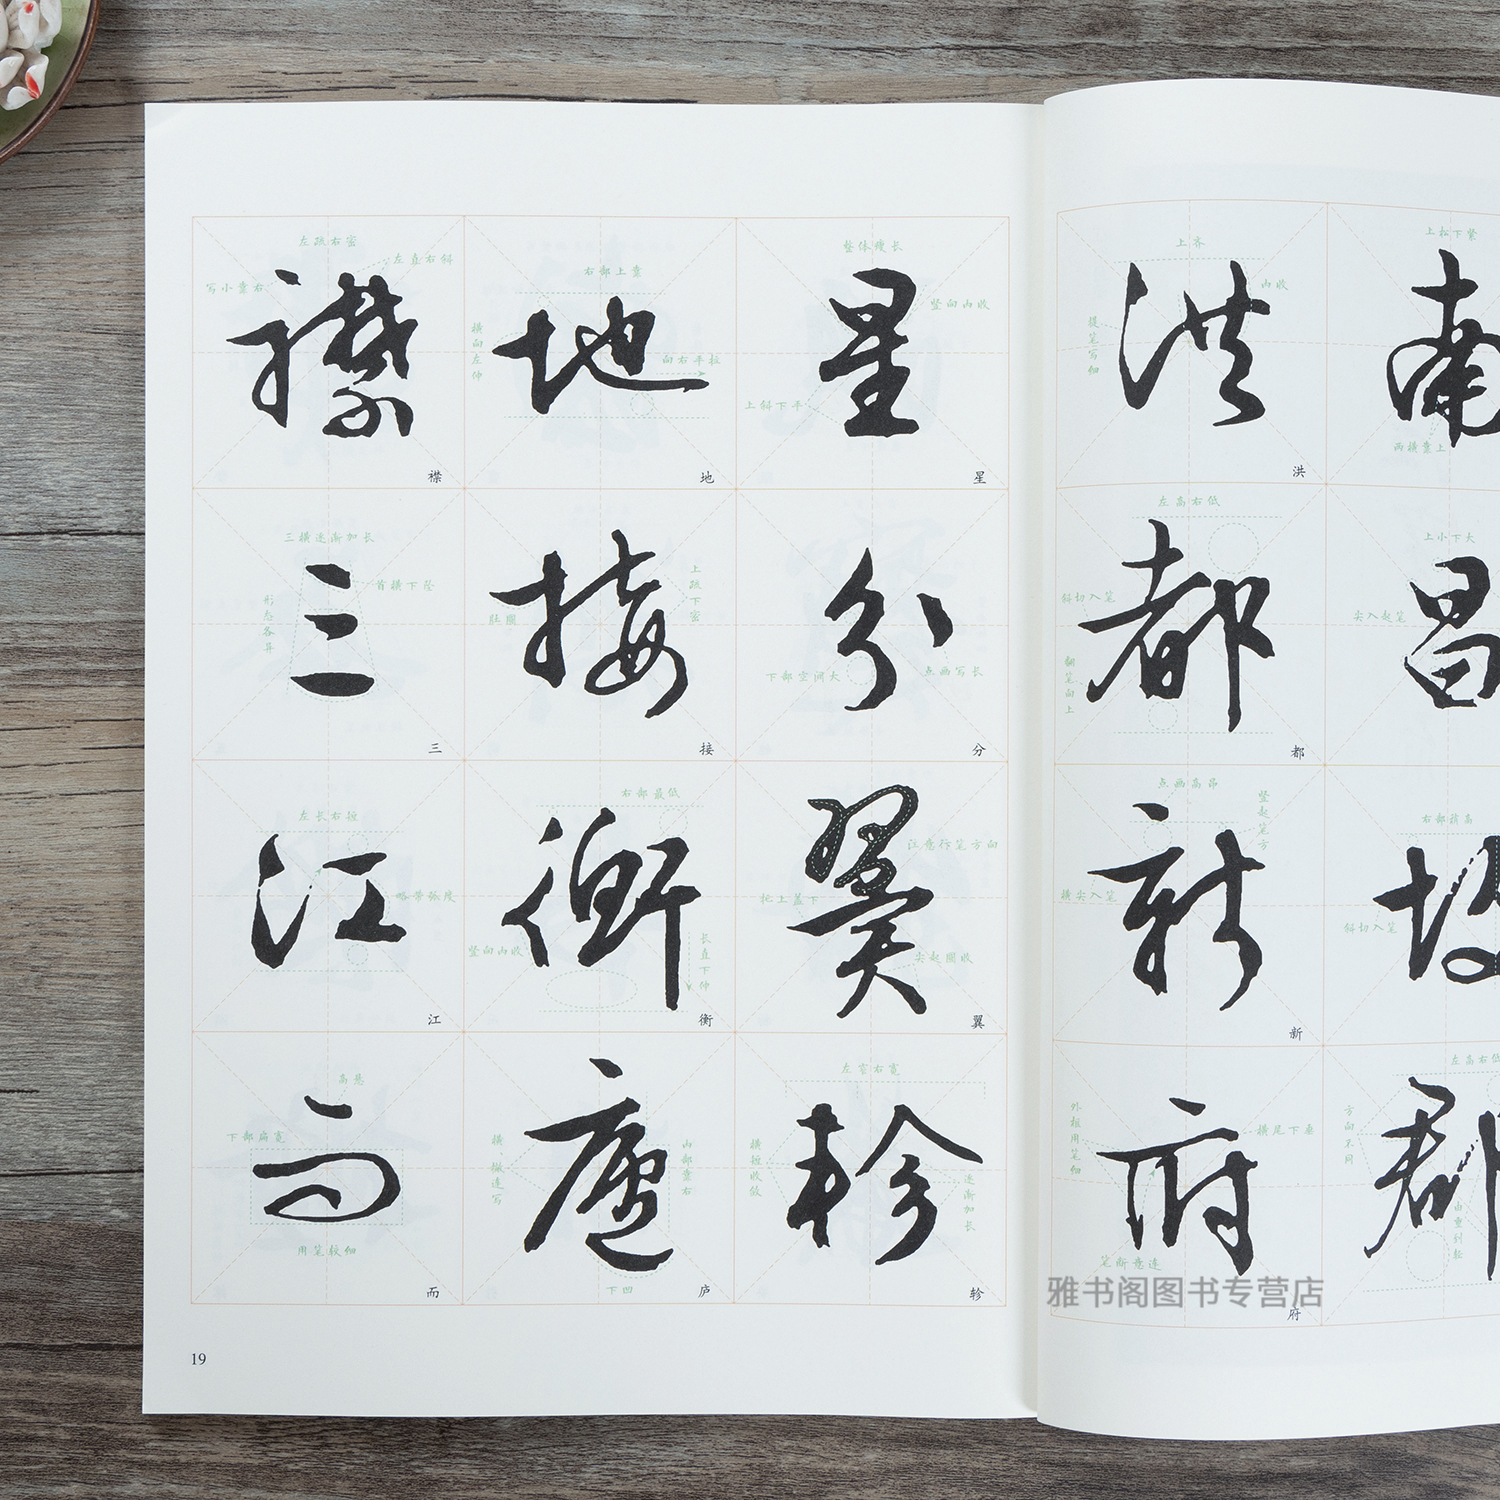 南
上松下紧
两横靠上
昌
上小下大
尖入起笔
右部稍高
斜切入笔
郡
左高右低
洪
上齐
内收
提笔写细
洪
都
左高右低
斜切入笔
翻笔向上
都
新
点画高昂
竖起笔方
横尖入笔
新
府
外粗用笔细
横尾下垂
笔断意连
府
星
整体瘦长
竖向内收
上斜下平
星
分
下部空间大
点画写长
分
翼
注意行笔方向
托上盖下
尖起圆收
翼
轸
左窄右宽
横短收敛
逐渐加长
轸
地
右部上靠
横向左伸
向右平拉
地
接
上疏下密
接
衡
右部最低
竖向内收
长直下伸
衡
庐
横、撇连写
内部靠右
下凹
庐
襟
左疏右密
左直右斜
写小靠右
襟
三
三横逐渐加长
首横下坠
形态各异
三
江
左长右短
略带弧度
江
而
高悬
下部扁宽
用笔较细
而
19
雅书阁图书专营店